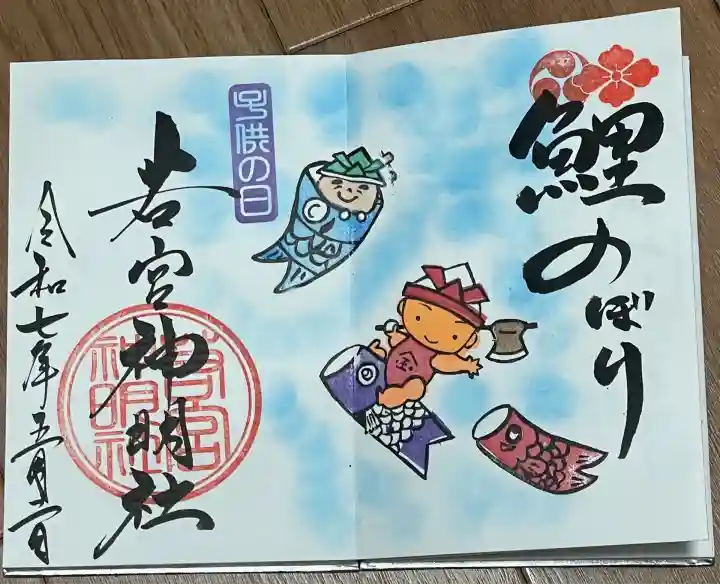 鯉のぼり
子供の日
金
若宮神明社
若宮神明社
令和七年五月一日